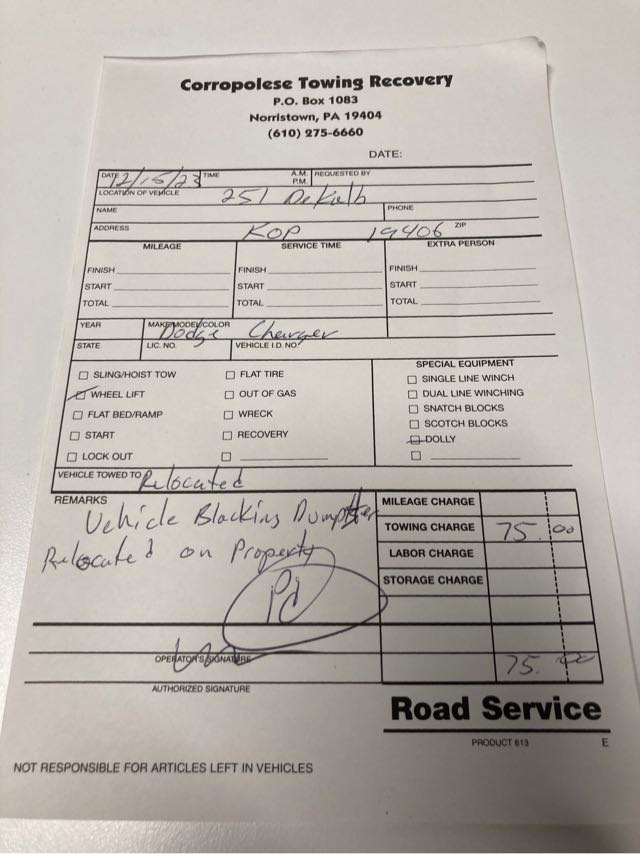 Corropolese Towing Recovery
P.O. Box 1083
Norristown, PA 19404
(610) 275-6660
DATE:
DATE 12/15/23 TIME A.M. P.M. REQUESTED BY
LOCATION OF VEHICLE 251 DeKalb
NAME PHONE
ADDRESS KOP 19406 ZIP
MILEAGE SERVICE TIME EXTRA PERSON
FINISH FINISH FINISH
START START START
TOTAL TOTAL TOTAL
YEAR MAKE/MODEL/COLOR Dodge Charger
STATE LIC. NO. VEHICLE I.D. NO.
SPECIAL EQUIPMENT
SLING/HOIST TOW FLAT TIRE SINGLE LINE WINCH
WHEEL LIFT OUT OF GAS DUAL LINE WINCHING
FLAT BED/RAMP WRECK SNATCH BLOCKS
START RECOVERY SCOTCH BLOCKS
LOCK OUT DOLLY
VEHICLE TOWED TO Relocated
REMARKS MILEAGE CHARGE
Vehicle Blocking Dumpster
TOWING CHARGE 75.00
Relocated on Property
LABOR CHARGE
STORAGE CHARGE
Pd
OPERATOR'S SIGNATURE
75.00
AUTHORIZED SIGNATURE
Road Service
PRODUCT 613 E
NOT RESPONSIBLE FOR ARTICLES LEFT IN VEHICLES